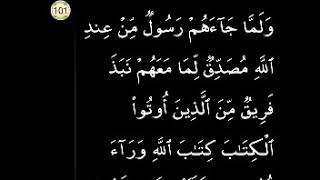 101
وَلَمَّا جَآءَهُمْ رَسُولٌ مِّنْ عِندِ
ٱللَّهِ مُصَدِّقٌ لِّمَا مَعَهُمْ نَبَذَ
فَرِيقٌ مِّنَ ٱلَّذِينَ أُوتُوا۟
ٱلْكِتَـٰبَ كِتَـٰبَ ٱللَّهِ وَرَآءَ